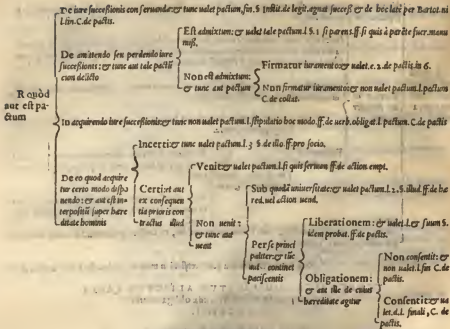 De iure successionis conseruando: & tunc ualet pactum, fin. §. Instit. de legit. agnat. success. & de hoc late per Bartol. ni
l. fin. C. de pactis.
R quòd
aut est pa-
ctum
De amittendo seu perdendo iure
successionis: & tunc aut tale pactū
cum delicto
Est admixtum: & ualet tale pactum. l. §. 1 si parens. ff. si quis à parēte fuer. manu
miss.
Non est admixtum:
& tunc aut pactum
Firmatur iuramento: & ualet. c. 2. de pactis. in 6.
Non firmatur iuramento: & non ualet pactum. l. pactum
C. de collat.
In acquirendo iure successionis: & tunc non ualet pactum. l. stipulatio hoc modo. ff. de uerb. obligat. l. pactum. C. de pactis
De eo quod acquire
tur certo modo dispo
nendo: & aut est in-
terpositū super hære
ditate hominis
Incerti: & tunc ualet pactum. l. 3. §. de illo. ff. pro socio.
Certi: & aut
ex consequen
tia prioris con
tractus illud
Venit: & ualet pactum. l. si quis seruum ff. de action. empt.
Non uenit:
& tunc aut
uent
Sub quadā uniuersitate: & ualet pactum. l. 2. §. illud. ff. de hæ
red. uel action uend.
Per se princi
paliter: & tūc
aut continet
paciscentis
Liberationem: & ualet. l. & suum §.
idem probat. ff. de pactis.
Obligationem:
& aut ille de cuius
hæreditate agitur
Non consentit: &
non ualet. l. fin C. de
pactis.
Consentit: & ua
let. d. l. finali, C. de
pactis.